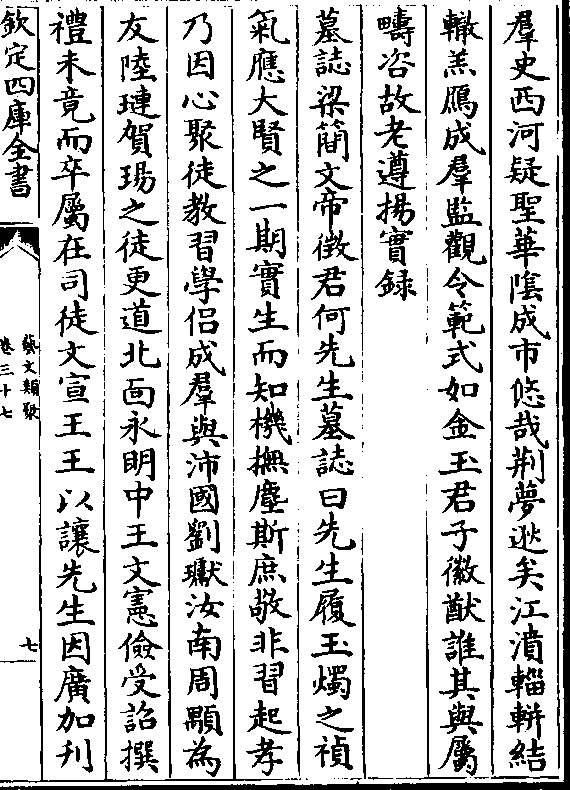 羣史西河疑聖華隂成市悠哉荆夢逖矣江濆輜軿結
轍羔鴈成羣監觀令範式如金玉君子徽猷誰其與屬
疇咨故老遵揚實録
墓誌梁簡文帝徴君何先生墓誌曰先生履玉燭之禎
氣應大賢之一期實生而知機撫塵斯庶敬非習起孝
乃因心聚徒教習學侣成羣與沛國劉瓛汝南周顒為
友陸璉賀瑒之徒更道北面永明中王文憲儉受詔撰
禮未竟而卒屬在司徒文宣王王以讓先生因廣加刋
欽定四庫全書
藝文類聚
卷三十七
七